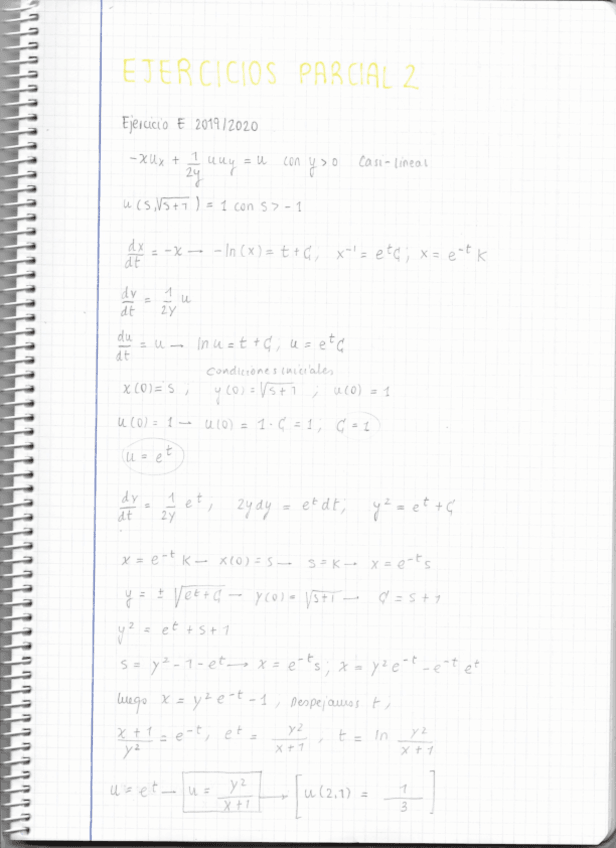 EJERCICIOS PARCIAL 2
Ejercicio E 2019/2020
-xu_x + 1/2y u u_y = u con y>0 Casi-lineal
u(s,√s+1) = 1 con s>-1
dx/dt = -x → -ln(x) = t+C, x^-1 = e^t C; x = e^-t K
dy/dt = 1/2y u
du/dt = u → ln u = t+C, u = e^t C
condiciones iniciales
x(0)=s, y(0)=√s+1; u(0)=1
u(0)=1 → u(0) = 1·C = 1, C=1
u = e^t
dy/dt = 1/2y e^t; 2ydy = e^t dt; y² = e^t + C
x = e^-t K → x(0)=s → s=K → x = e^-t s
y = ± √e^t+C → y(0) = √s+1 → C = s+1
y² = e^t + s+1
s = y²-1-e^t → x = e^-t s; x = y² e^-t - e^-t e^t
luego x = y² e^-t - 1, Despejamos t;
x+1/y² = e^-t, e^t = y²/x+1, t = ln y²/x+1
u = e^t → u = y²/x+1 → [u(2,1) = 1/3]